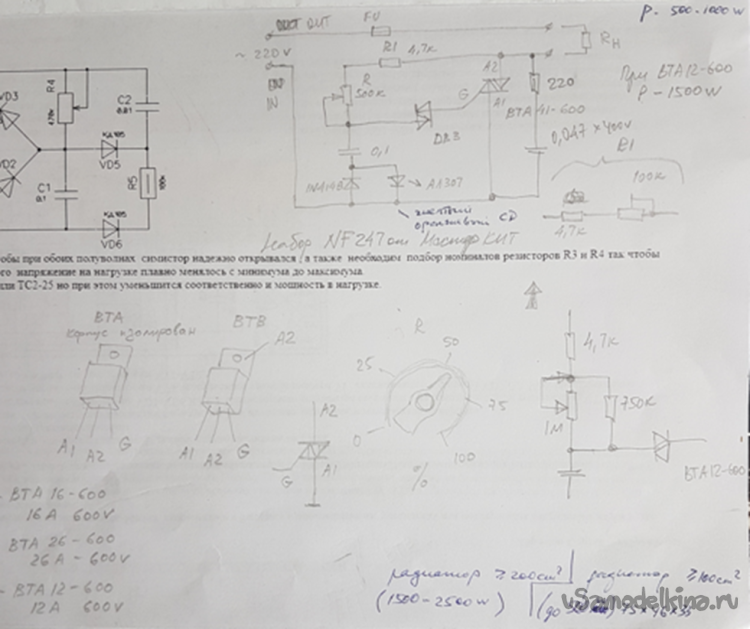 P - 500-1000 W
FU
OUT
~ 220 V
R1 4,7K
RH
IN
R
500K
A2
G
A1
220
При BTA12-600
P - 1500 W
BTA 41-600
DB3
0,1
0,047 × 400V
R1
100K
4,7K
АЛ307
желтый
оранжевый СД
Набор NF247 от Мастер КИТ
VD3
R4
470к
C2
0.01
КД105
VD5
VD2
C1
0.1
R5
КД105
VD6
обы при обоих полуволнах симистор надежно открывался, а также необходим подбор номиналов резисторов R3 и R4 так чтобы
ого напряжение на нагрузке плавно менялось с минимума до максимума.
или ТС2-25 но при этом уменьшится соответственно и мощность в нагрузке.
BTA
корпус изолирован
BTB
A2
A1 A2 G
A1 A2 G
A2
G
A1
R
0
25
50
75
100
%
4,7K
1M
750K
BTA12-600
- BTA 16-600
16A 600V
BTA 26-600
26A - 600V
- BTA 12-600
12A 600V
радиатор ≥ 200cm²
(1500-2500W)
радиатор ≥ 100cm²
uSamodelkina.ru